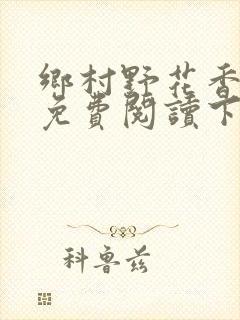 鄉村野花香
免費閱讀下
科魯茲